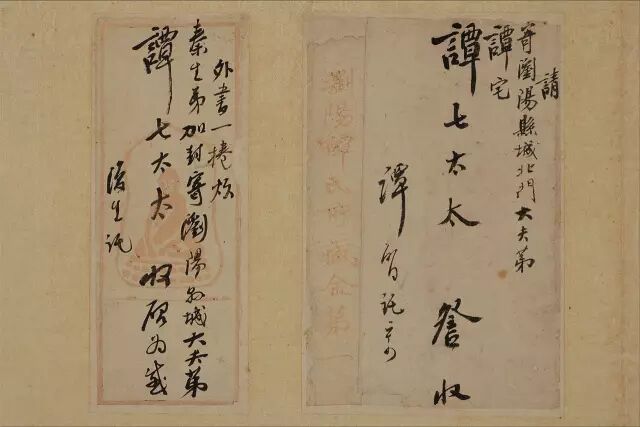 請
寄瀏陽縣城北門大夫第
譚宅
譚七太太 詧收
譚 託
瀏陽譚氏所藏金第一
外書一捲煩
秦生弟加封寄瀏陽縣城大夫第
譚七太太收 為感
復生託